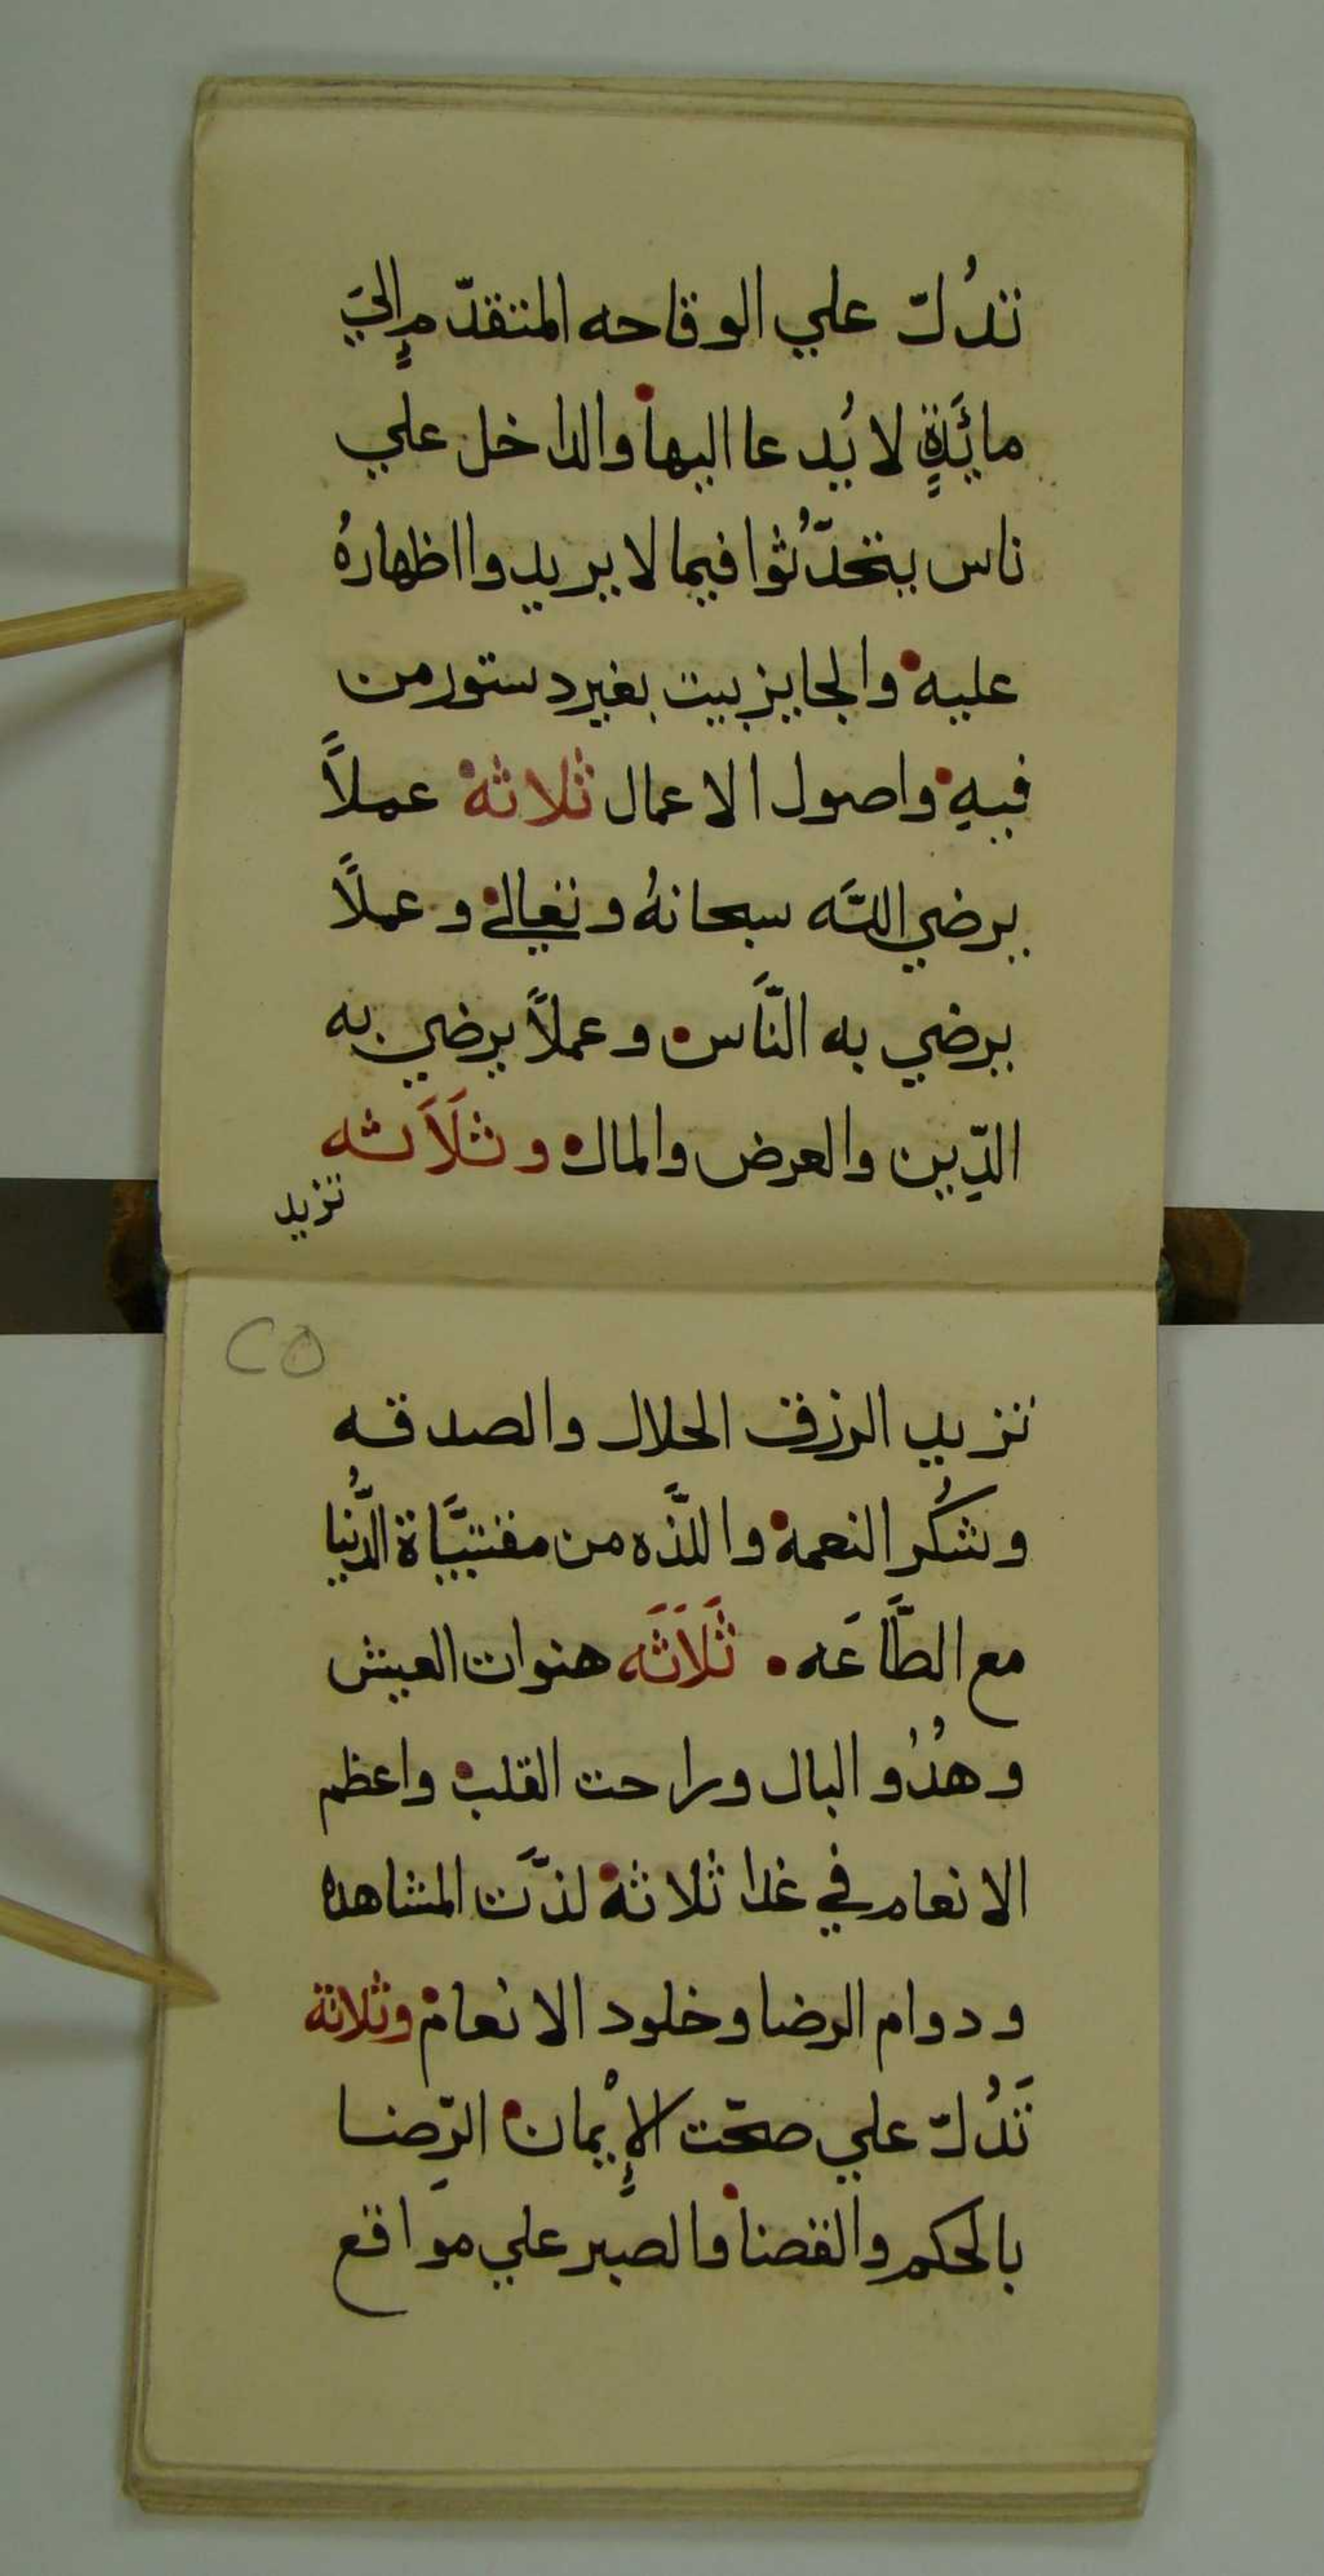 تدُلّ علي الوقاحه المتقدّمٍ اليَ
مائَدةٍ لا يُدعا اليها والداخل علي
ناس يتحدّثُوا فيما لا يريدوا اظهارهُ
عليه والجايز بيت بغير دستور من
فيهِ واصول الاعمال ثلاثة عملاً
يرضي اللَّه سبحانهُ وتعالي وعملاً
يرضي به النَّاس وعملاً يرضي به
الدِّين والعرض والمال وثلَاَثه
تزيد
٢٥
تزيد الرزق الحلال والصدقه
وشكُر النعمة واللذَّه من مقتنيَّاة الدُّنيا
مع الطَّاعَه ثَلَاَثَه هنوات العيش
وهدُو البال وراحت القلب واعظم
الانعام في غدا ثلاثة لذَّت المشاهده
ودوام الرضا وخلود الانعام وثلاثة
تَدُلّ علي صحّت الإيْمان الرِّضا
بالحكم والقضا والصبر علي مواقع